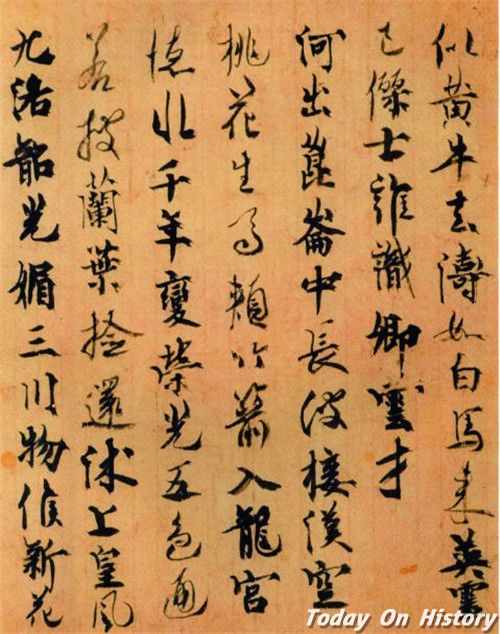 似黄牛去濤如白馬来英靈
已傑士誰識卿雲才
何出崑崙中長波接漢空
桃花生馬頰竹箭入龍宮
德水千年變榮光五色通
若披蘭葉撿還沐上皇風
九洛韶光媚三川物候新花
Today On History